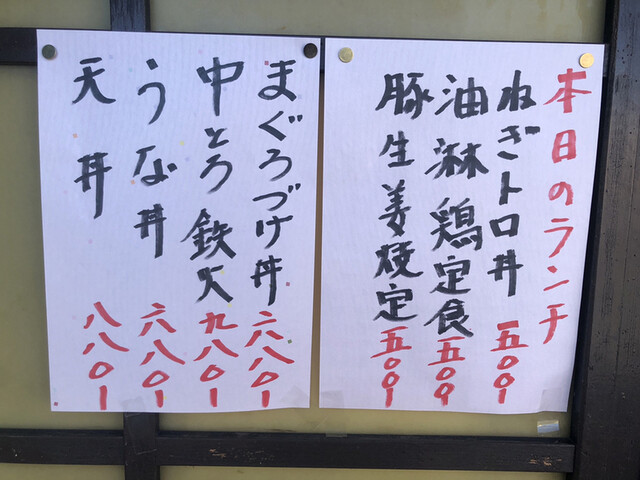 本日のランチ
ねぎトロ丼 五〇〇ー
油淋鶏定食 五〇〇
豚生姜焼定 五〇〇ー
まぐろづけ丼 六八〇ー
中とろ鉄火 九八〇ー
うな丼 六八〇ー
天丼 八八〇ー